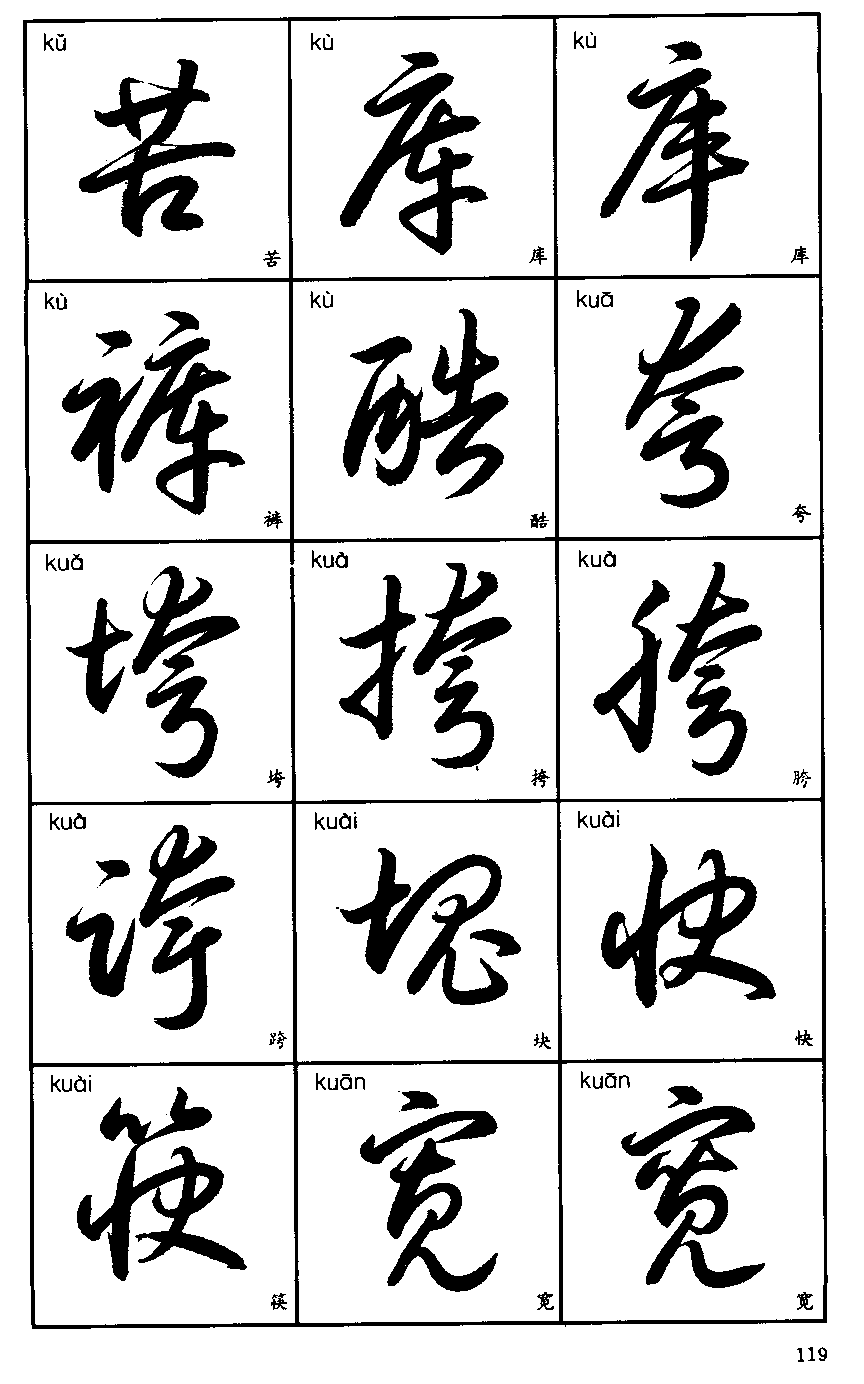 kǔ kù kù
苦 库 库
苦 库 库
kù kù kuā
裤 酷 夸
裤 酷 夸
kuǎ kuà kuà
垮 挎 胯
垮 挎 胯
kuà kuài kuài
跨 塊 快
跨 块 快
kuài kuān kuān
筷 宽 宽
筷 宽 宽
119